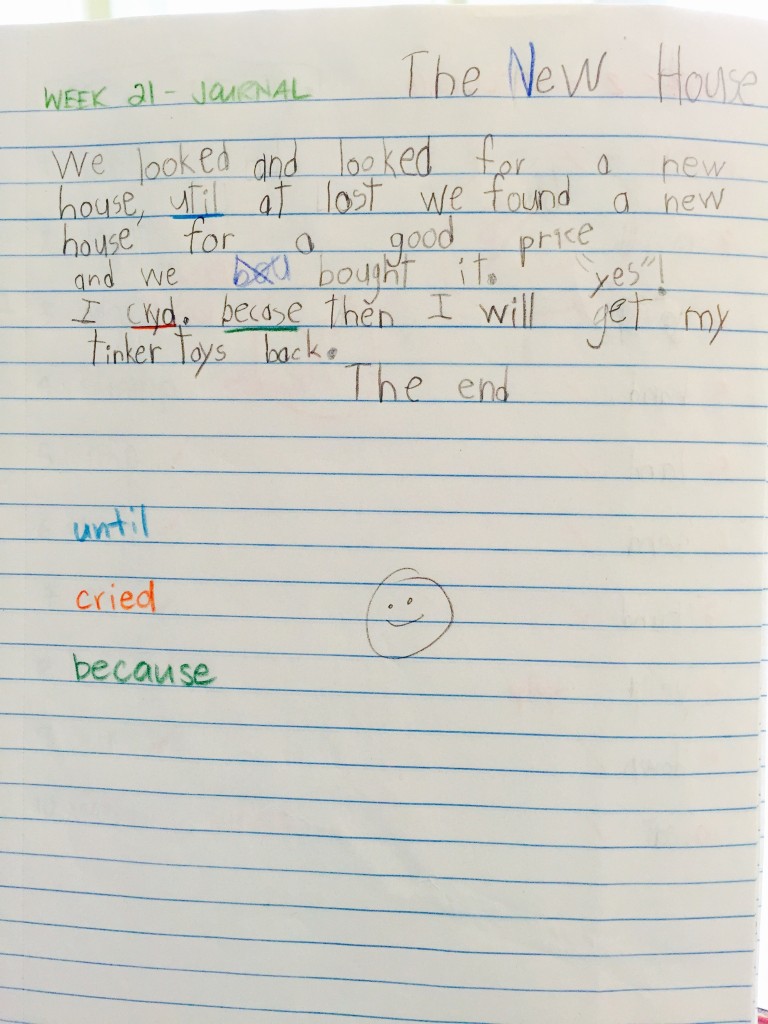 WEEK 21 - JOURNAL
The New House
We looked and looked for a new
house, util at last we found a new
house for a good price
and we bought it. "yes"!
I cryd. becase then I will get my
tinker toys back.
The end
until
cried
because